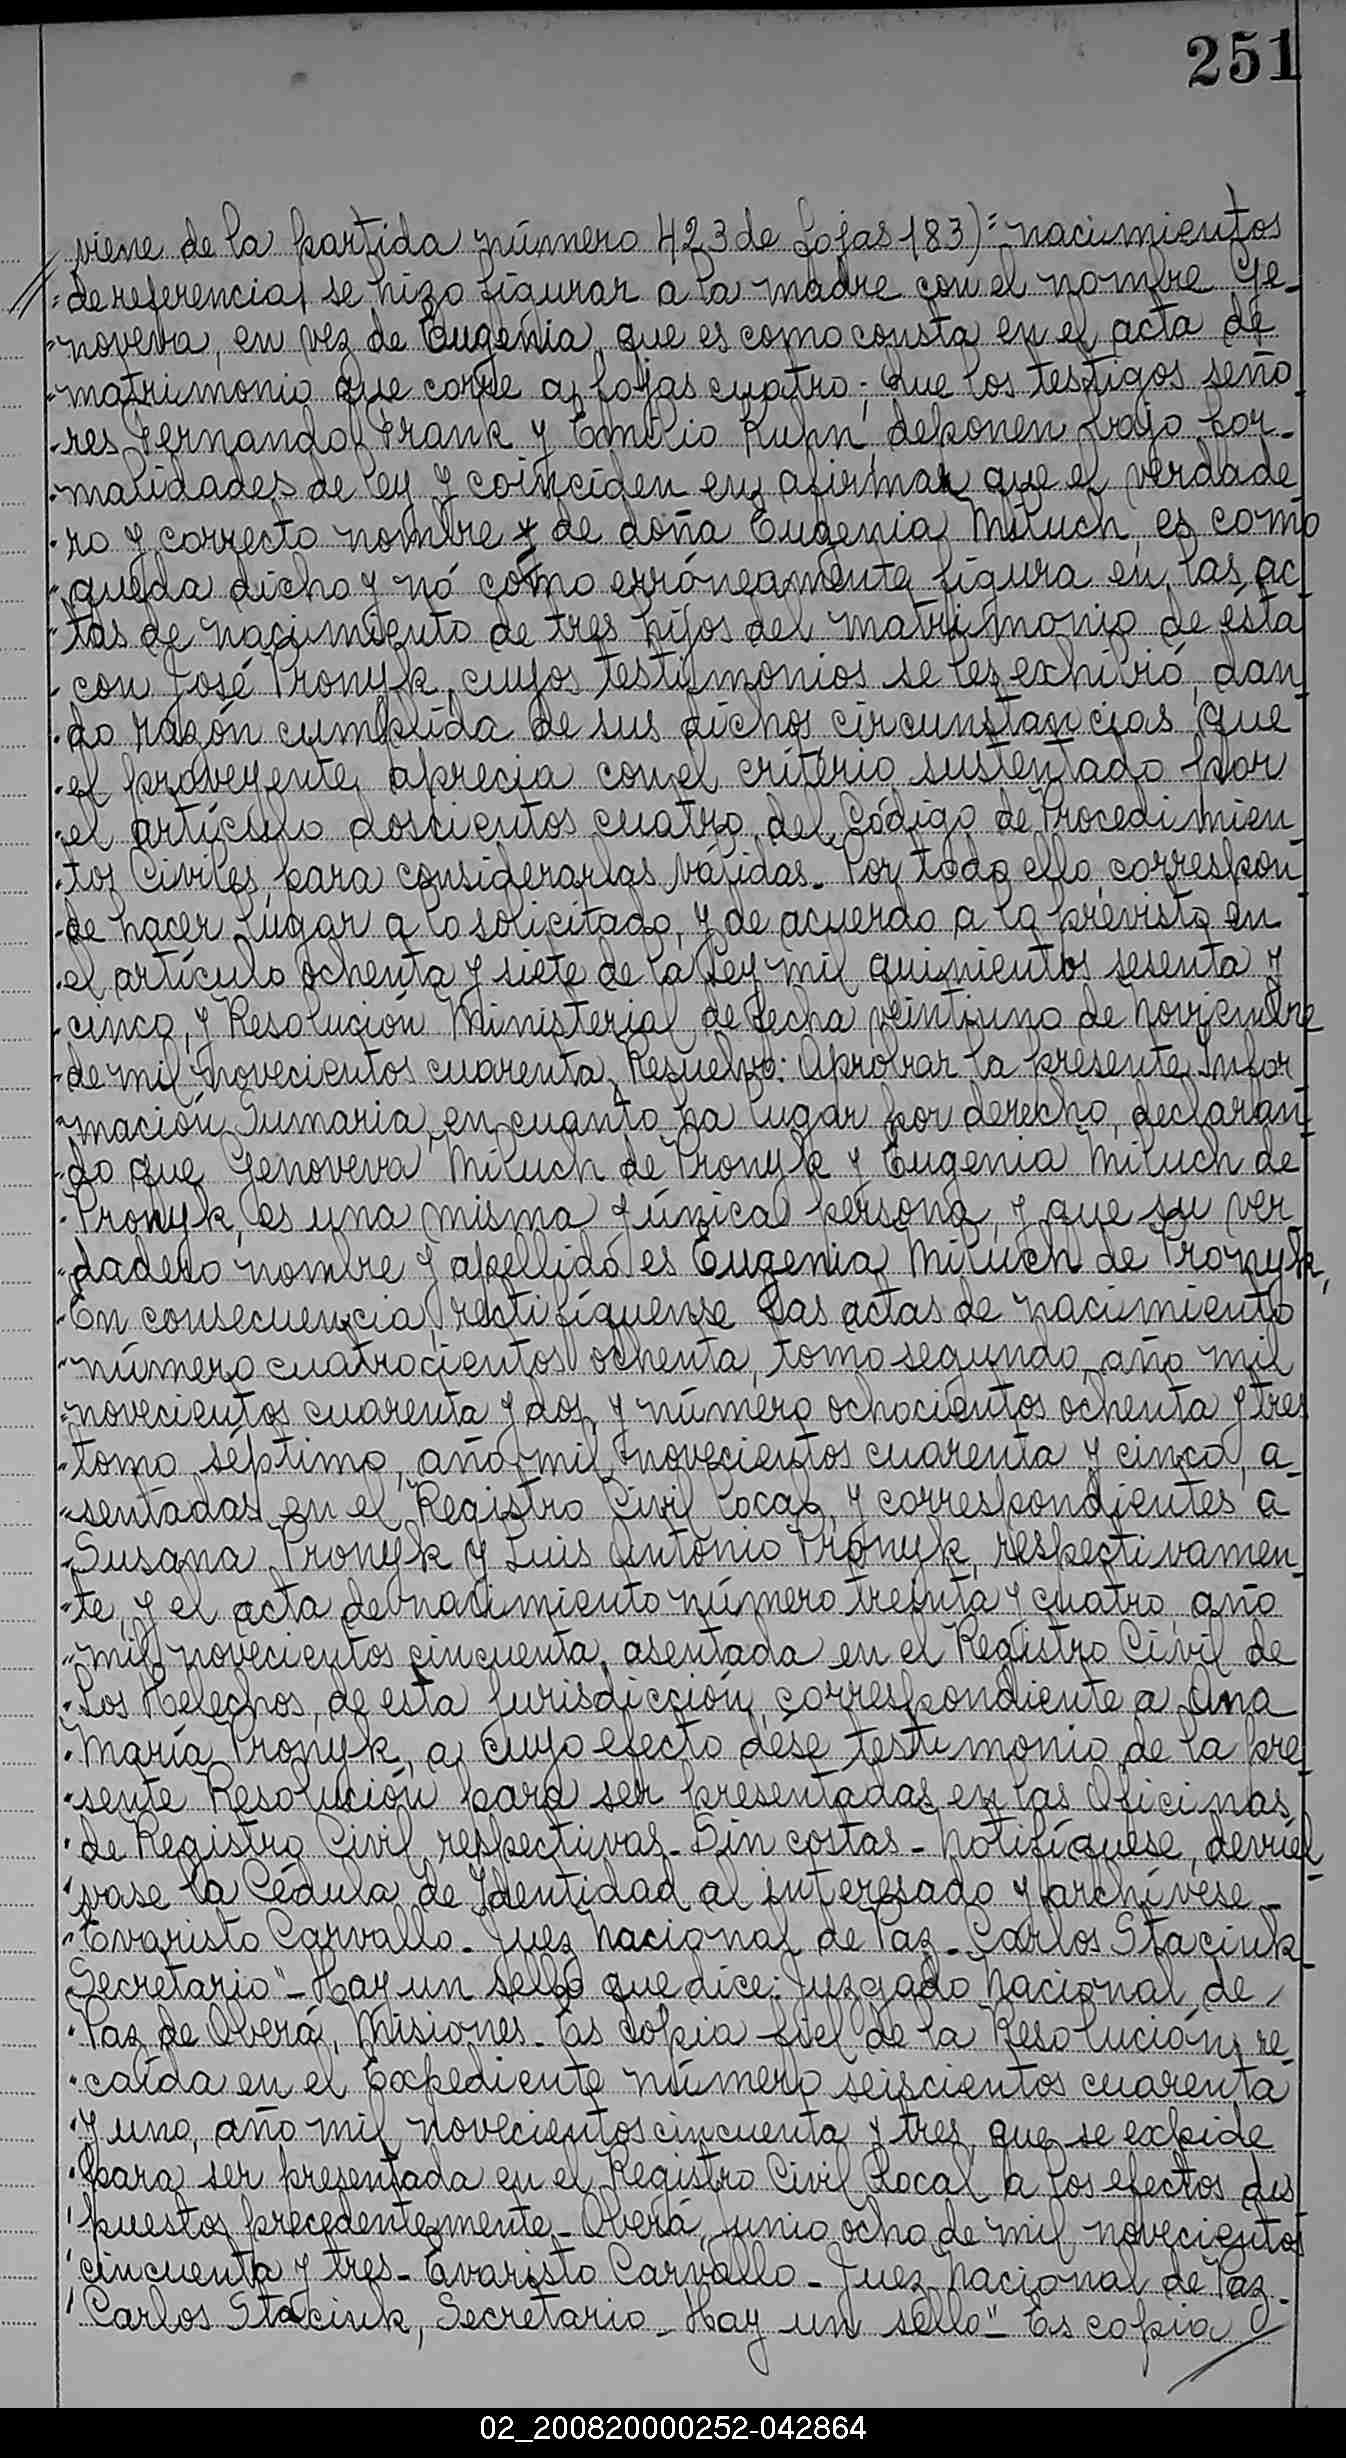 251
viene de la partida número 423 de fojas 183)=nacimientos
de referencia, se hizo figurar a la madre con el nombre Ge-
noveva, en vez de Eugenia, que es como consta en el acta de
matrimonio que corre a fojas cuatro; Que los testigos seño
res Fernando Frank y Emilio Kuhn, deponen bajo for-
malidades de ley y coinciden en afirmar que el verdade
ro y correcto nombre y de doña Eugenia Miluch, es como
queda dicho y nó como erróneamente figura en las ac
tas de nacimiento de tres hijos del matrimonio de ésta
con José Pronyk, cuyos testimonios se les exhibió, dan
do razón cumplida de sus dichos circunstancias que
el proveyente aprecia con el criterio sustentado por
el artículo doscientos cuatro del Código de Procedimien
tos Civiles para considerarlas válidas_ Por todo ello, correspon
de hacer lugar a lo solicitado, y de acuerdo a lo previsto en
el artículo ochenta y siete de la Ley mil quinientos sesenta y
cinco, y Resolución Ministerial de fecha veintiuno de Noviembre
de mil novecientos cuarenta, Resuelvo: Aprobar la presente Infor
mación Sumaria, en cuanto ha lugar por derecho, declaran
do que Genoveva Miluch de Pronyk y Eugenia Miluch de
Pronyk, es una misma y única persona, y que su ver
dadero nombre y apellido es Eugenia Miluch de Pronyk,
En consecuencia, rectifíquense las actas de nacimiento
número cuatrocientos ochenta, tomo segundo, año mil
novecientos cuarenta y dos, y número ochocientos ochenta y tres
tomo séptimo, año mil novecientos cuarenta y cinco, a_
sentadas en el Registro Civil local, y correspondientes a
Susana Pronyk y Luis Antonio Pronyk, respectivamen
te, y el acta de nacimiento número treinta y cuatro, año
mil novecientos cincuenta, asentada en el Registro Civil de
Los Helechos, de esta Jurisdicción, correspondiente a Ana
María Pronyk, a cuyo efecto dése testimonio de la pre
sente Resolución para ser presentadas en las Oficinas
de Registro Civil respectivas_ Sin costas_ Notifíquese, devuél
vase la Cédula de Identidad al interesado y archívese_
Evaristo Carvallo_ Juez Nacional de Paz_ Carlos Staciuk
Secretario"_ Hay un sello que dice: Juzgado Nacional de
Paz de Oberá, Misiones_ Es copia fiel de la Resolución re_
caída en el Expediente número seiscientos cuarenta
y uno, año mil novecientos cincuenta y tres, que se expide
para ser presentada en el Registro Civil Local a los efectos dis
puestos precedentemente_ Oberá, Junio ocho de mil novecientos
cincuenta y tres_ Evaristo Carvallo_ Juez Nacional de Paz_
Carlos Staciuk, Secretario_ Hay un sello"_ Es copia
02_200820000252-042864